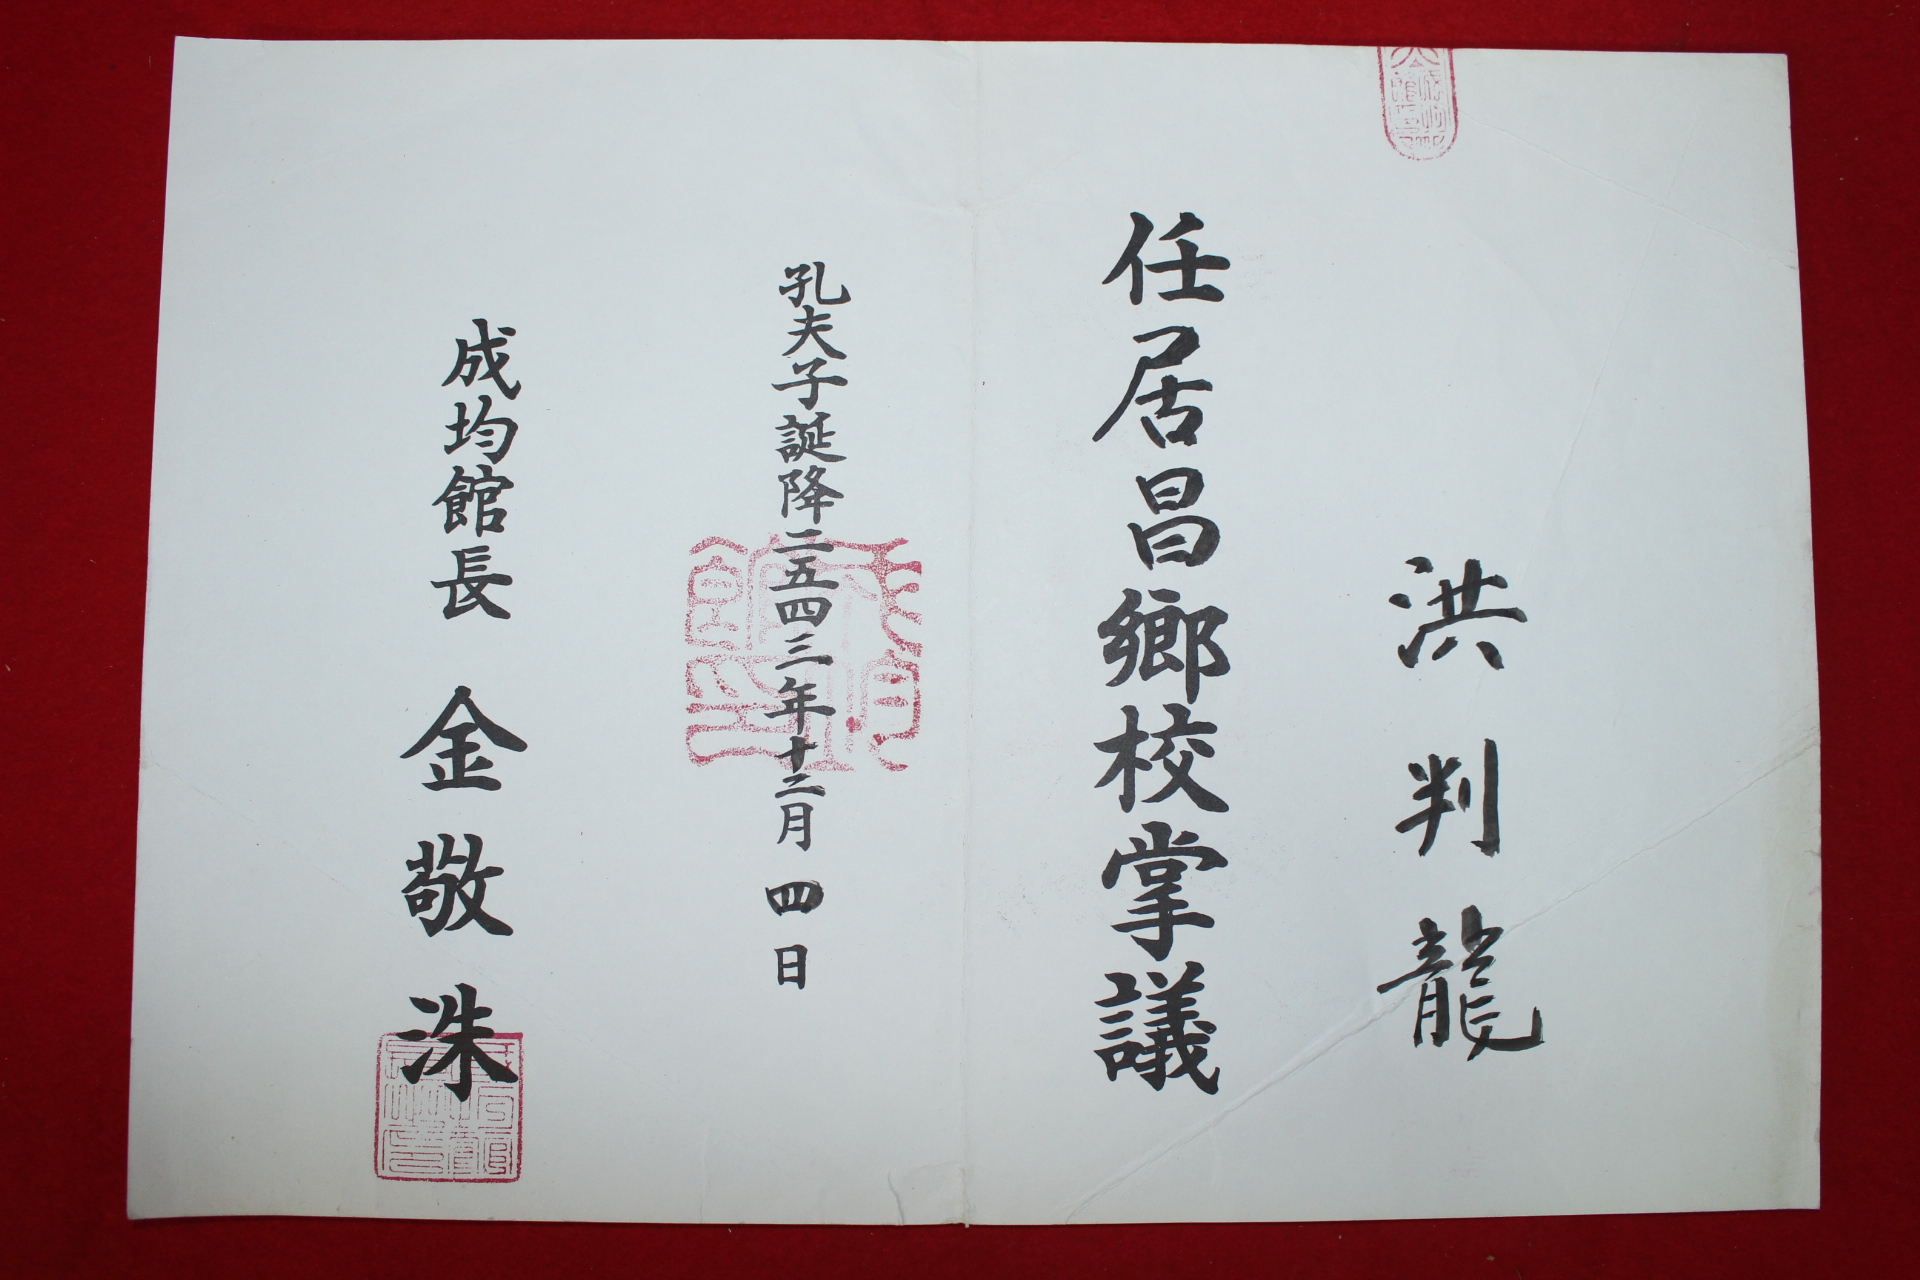 洪判龍
任居昌鄉校掌議
孔夫子誕降二五四三年十二月四日
成均館長 金敬洙
成均館印